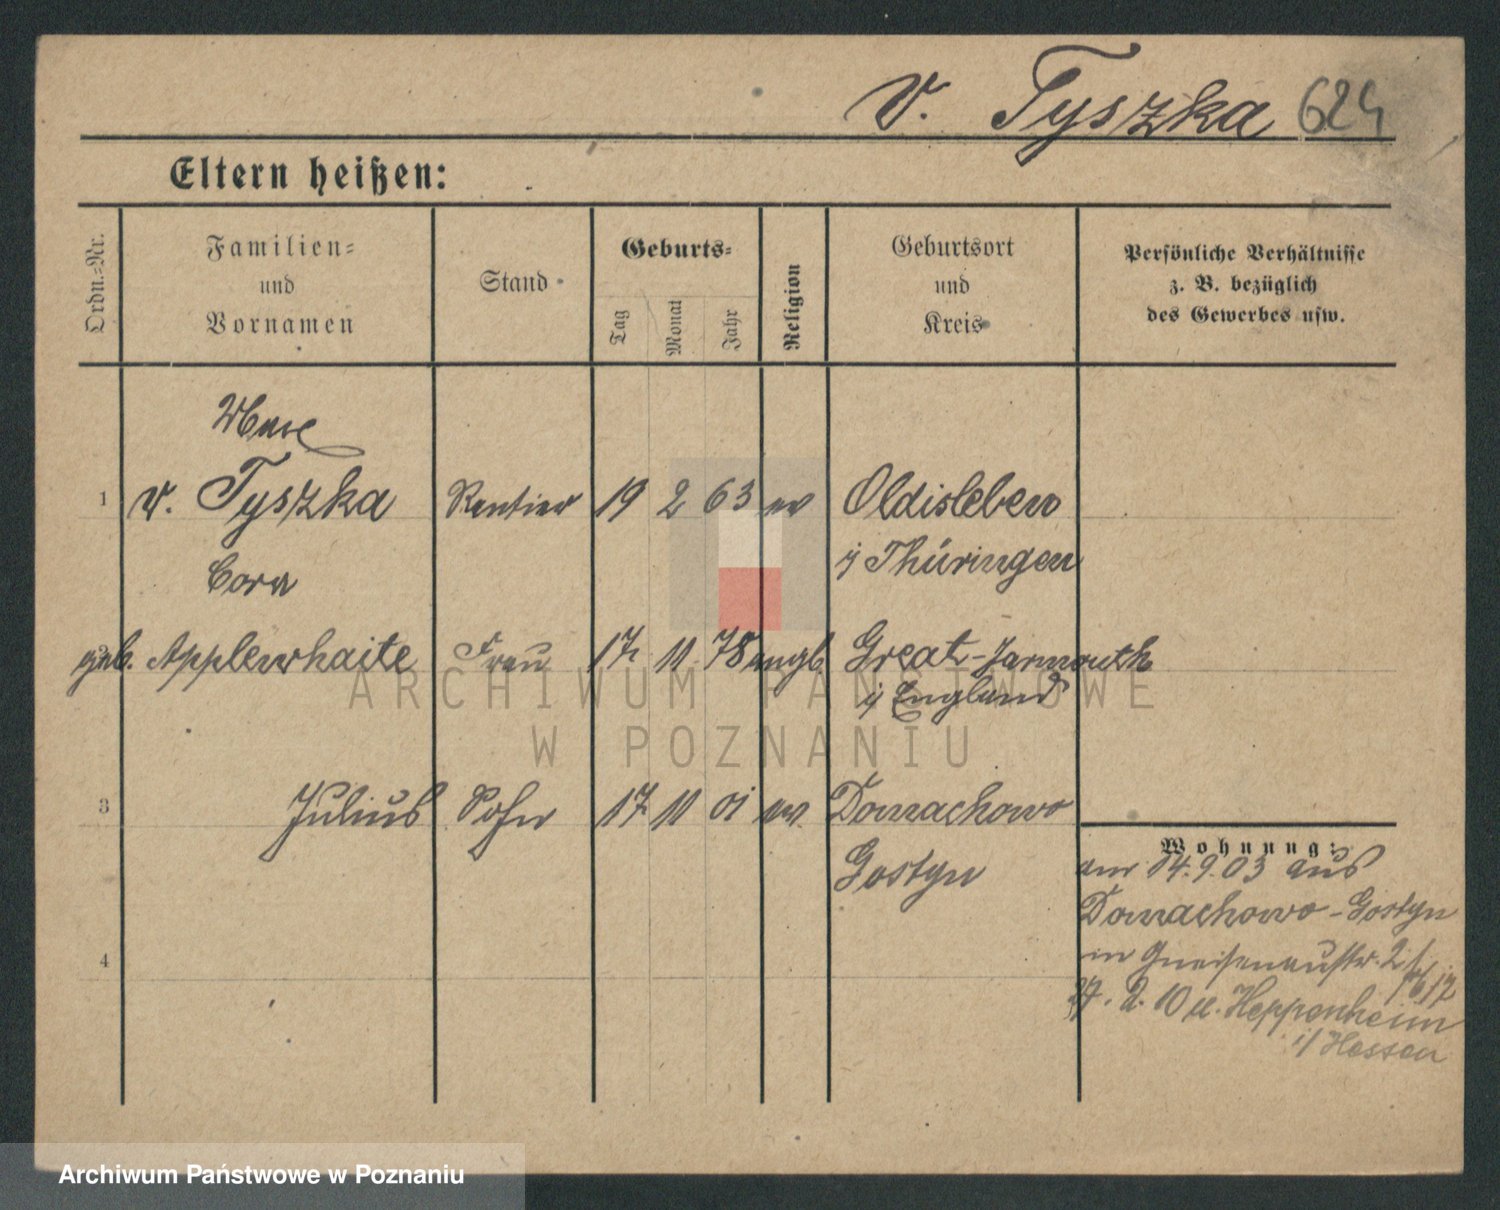 v. Tyszka 624
Eltern heißen:
Ordn.=Nr.
Familien=
und
Vornamen
Stand
Geburts=
Tag
Monat
Jahr
Religion
Geburtsort
und
Kreis
Persönliche Verhältnisse
z. B. bezüglich
des Gewerbes usw.
1 v. Tyszka Rentier 19 2 63 ev Oldisleben
i/ Thüringen
Cora
geb. Applewhaite Frau 17 11 78 engl Great-Jarmouth
i/ England
3 Julius Sohn 17 11 01 ev. Domachowo
Gostyn
Wohnung:
am 14.9.03 aus
Domachowo-Gostyn
in Gneisenaustr. 2
4
27. 2. 10 n. Heppenheim
i/ Hessen
ARCHIWUM PAŃSTWOWE
W POZNANIU
Archiwum Państwowe w Poznaniu